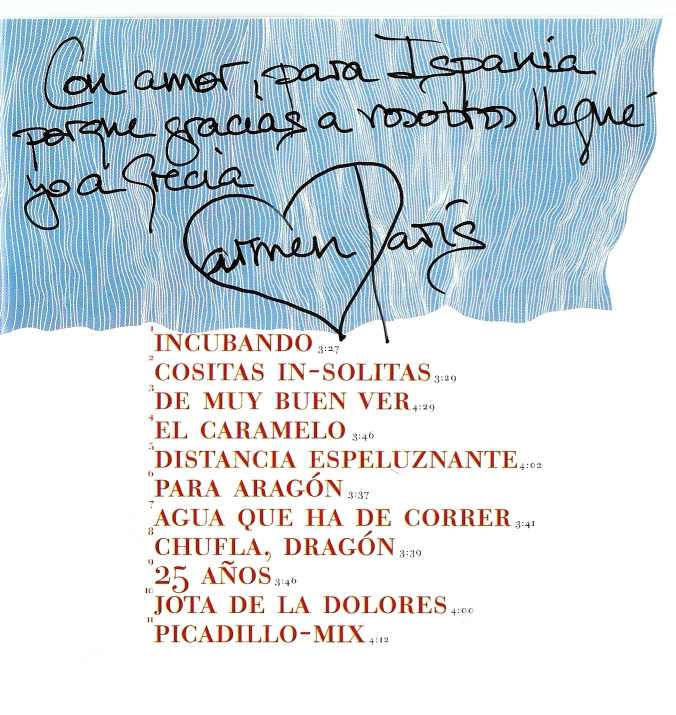 Con amor, para Ispania
porque gracias a vosotros llegué
yo a Grecia
Carmen París
1 INCUBANDO 3:27
2 COSITAS IN-SOLITAS 3:29
3 DE MUY BUEN VER 4:29
4 EL CARAMELO 3:46
5 DISTANCIA ESPELUZNANTE 4:02
6 PARA ARAGÓN 3:37
7 AGUA QUE HA DE CORRER 3:41
8 CHUFLA, DRAGÓN 3:39
9 25 AÑOS 3:46
10 JOTA DE LA DOLORES 4:00
11 PICADILLO-MIX 4:12